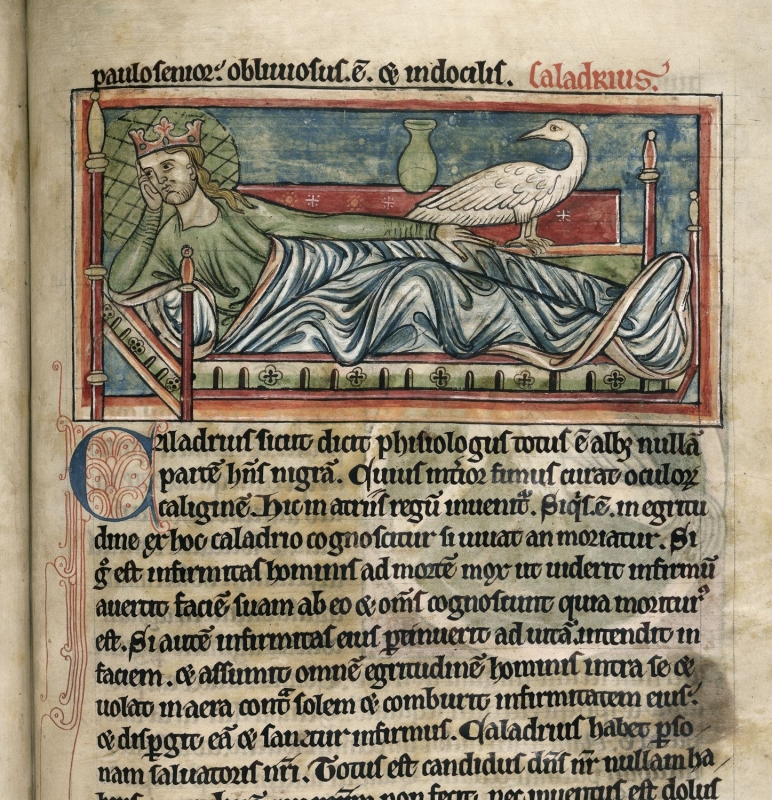 paulo senior. obliuiosus. ē. & indocilis. Caladrius.
Caladrius sicut dicit phisiologus totus ē albꝫ nullā
partē hn̄s nigrā. Cuius int̾ior fimus curat oculoꝝ
caliginē. Hic in atriis regū inuenit᷑. Siq̇s. ē. in egritu
dine ex hoc caladrio cognoscitur si uiuat an moriatur. Si
g̊ est infirmitas hominis ad mortē mox ut uiderit infirmū
auertit faciē suam ab eo & om̄s cognoscunt quia moritur᷒
est. Si autē infirmitas eius ꝑtinuerit ad uitā. intendit in
faciem. & assumit omnē egritudinē hominis intra se &
uolat in aera cont̄ solem & comburit infirmitatem eius.
& dispgit eā & sanatur infirmus. Caladrius habet ꝑso
nam saluatoris nr̄i. Totus est candidus dn̄s nr̄ nullam ha
non fecit. nec inuentus est dolus